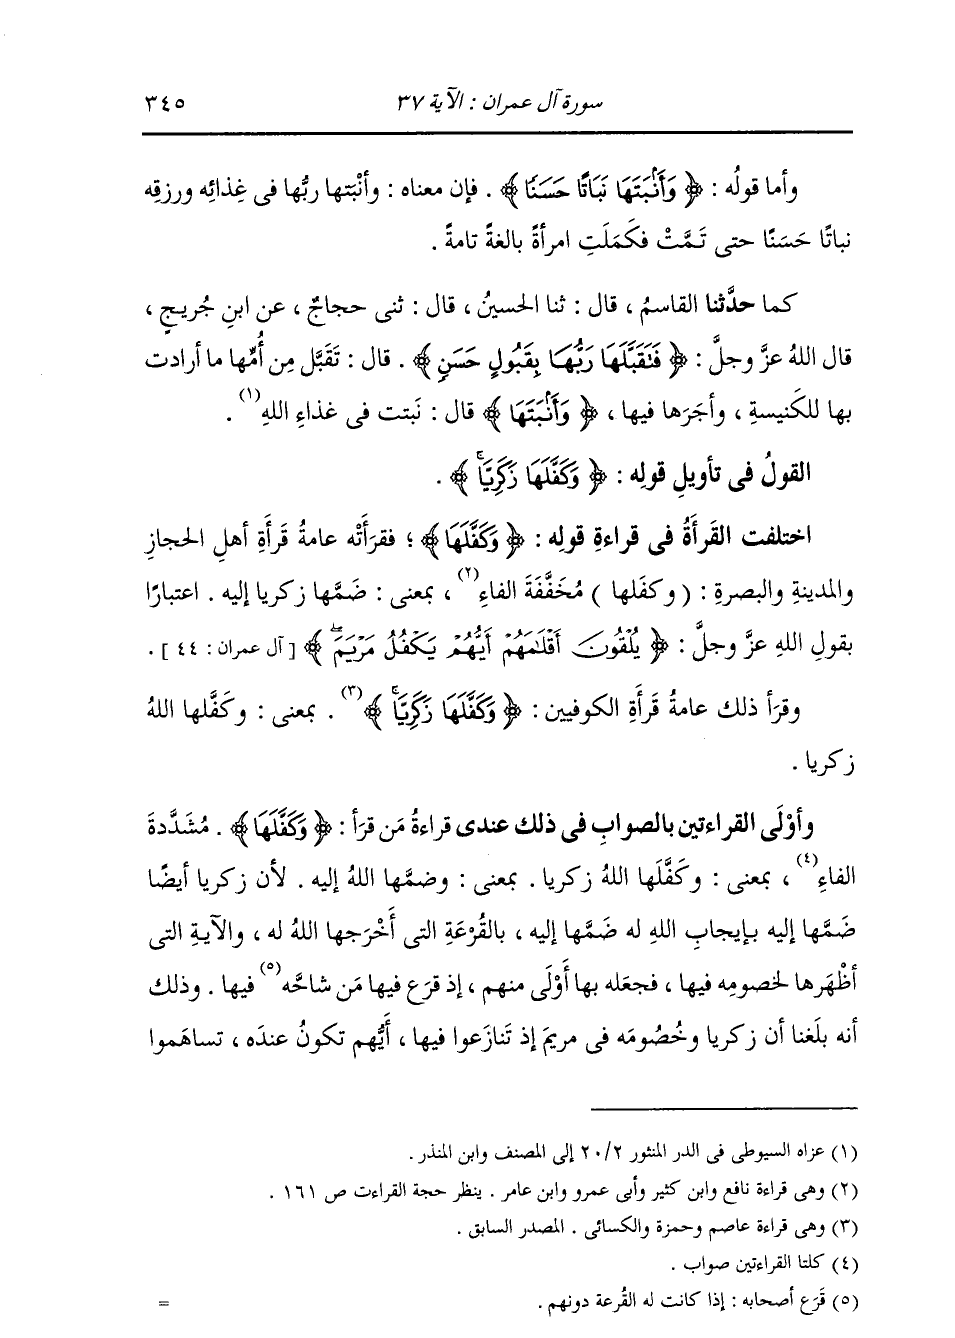 سورة آل عمران : الآية ٣٧ ٣٤٥
وأما قولُه : ﴿ وَأَنۢبَتَهَا نَبَاتًا حَسَنًا ﴾ . فإن معناه : وأنْبَتها ربُّها فى غِذائِه ورزقِه
نباتًا حَسَنًا حتى تَمَّتْ فكَمَلَتِ امرأةً بالغةً تامةً .
كما حدَّثنا القاسمُ ، قال : ثنا الحسينُ ، قال : ثنى حجاجٌ ، عن ابنِ جُريجٍ ،
قال اللهُ عزَّ وجلَّ : ﴿ فَتَقَبَّلَهَا رَبُّهَا بِقَبُولٍ حَسَنٍ ﴾ . قال : تَقَبَّل مِن أُمِّها ما أرادت
بها للكَنيسةِ ، وأجَرَها فيها ، ﴿ وَأَنۢبَتَهَا ﴾ قال : نَبتت فى غذاءِ اللهِ(١) .
القولُ فى تأويلِ قولِه : ﴿ وَكَفَّلَهَا زَكَرِيَّاۖ ﴾ .
اختلفت القَرأَةُ فى قراءةِ قولِه : ﴿ وَكَفَّلَهَا ﴾ ؛ فقرَأَتْه عامةُ قرأَةِ أهلِ الحجازِ
والمدينةِ والبصرةِ : ( وكفَلها ) مُخَفَّفَةَ الفاءِ(٢) ، بمعنى : ضَمَّها زكريا إليه . اعتبارًا
بقولِ اللهِ عزَّ وجلَّ : ﴿ يُلْقُونَ أَقْلَٰمَهُمْ أَيُّهُمْ يَكْفُلُ مَرْيَمَ ﴾ [ آل عمران : ٤٤ ] .
وقرَأ ذلك عامةُ قَرأَةِ الكوفيين : ﴿ وَكَفَّلَهَا زَكَرِيَّاۖ ﴾(٣) . بمعنى : وكَفَّلها اللهُ
زكريا .
وأوْلَى القراءتين بالصوابِ فى ذلك عندى قراءةُ مَن قرَأ : ﴿ وَكَفَّلَهَا ﴾ . مُشَدَّدةَ
الفاءِ(٤) ، بمعنى : وكَفَّلَها اللهُ زكريا . بمعنى : وضمَّها اللهُ إليه . لأن زكريا أيضًا
ضَمَّها إليه بإيجابِ اللهِ له ضَمَّها إليه ، بالقُرْعَةِ التى أَخْرَجها اللهُ له ، والآيةِ التى
أظْهَرها لخصومِه فيها ، فجعَله بها أَوْلَى منهم ، إذ قرَع فيها مَن شاحَّه(٥) فيها . وذلك
أنه بلَغنا أن زكريا وخُصُومَه فى مريمَ إذ تَنازَعوا فيها ، أَيُّهم تكونُ عندَه ، تساهَموا
(١) عزاه السيوطى فى الدر المنثور ٢٠/٢ إلى المصنف وابن المنذر .
(٢) وهى قراءة نافع وابن كثير وأبى عمرو وابن عامر . ينظر حجة القراءت ص ١٦١ .
(٣) وهى قراءة عاصم وحمزة والكسائى . المصدر السابق .
(٤) كلتا القراءتين صواب .
(٥) قَرَع أصحابه : إذا كانت له القُرعة دونهم . =